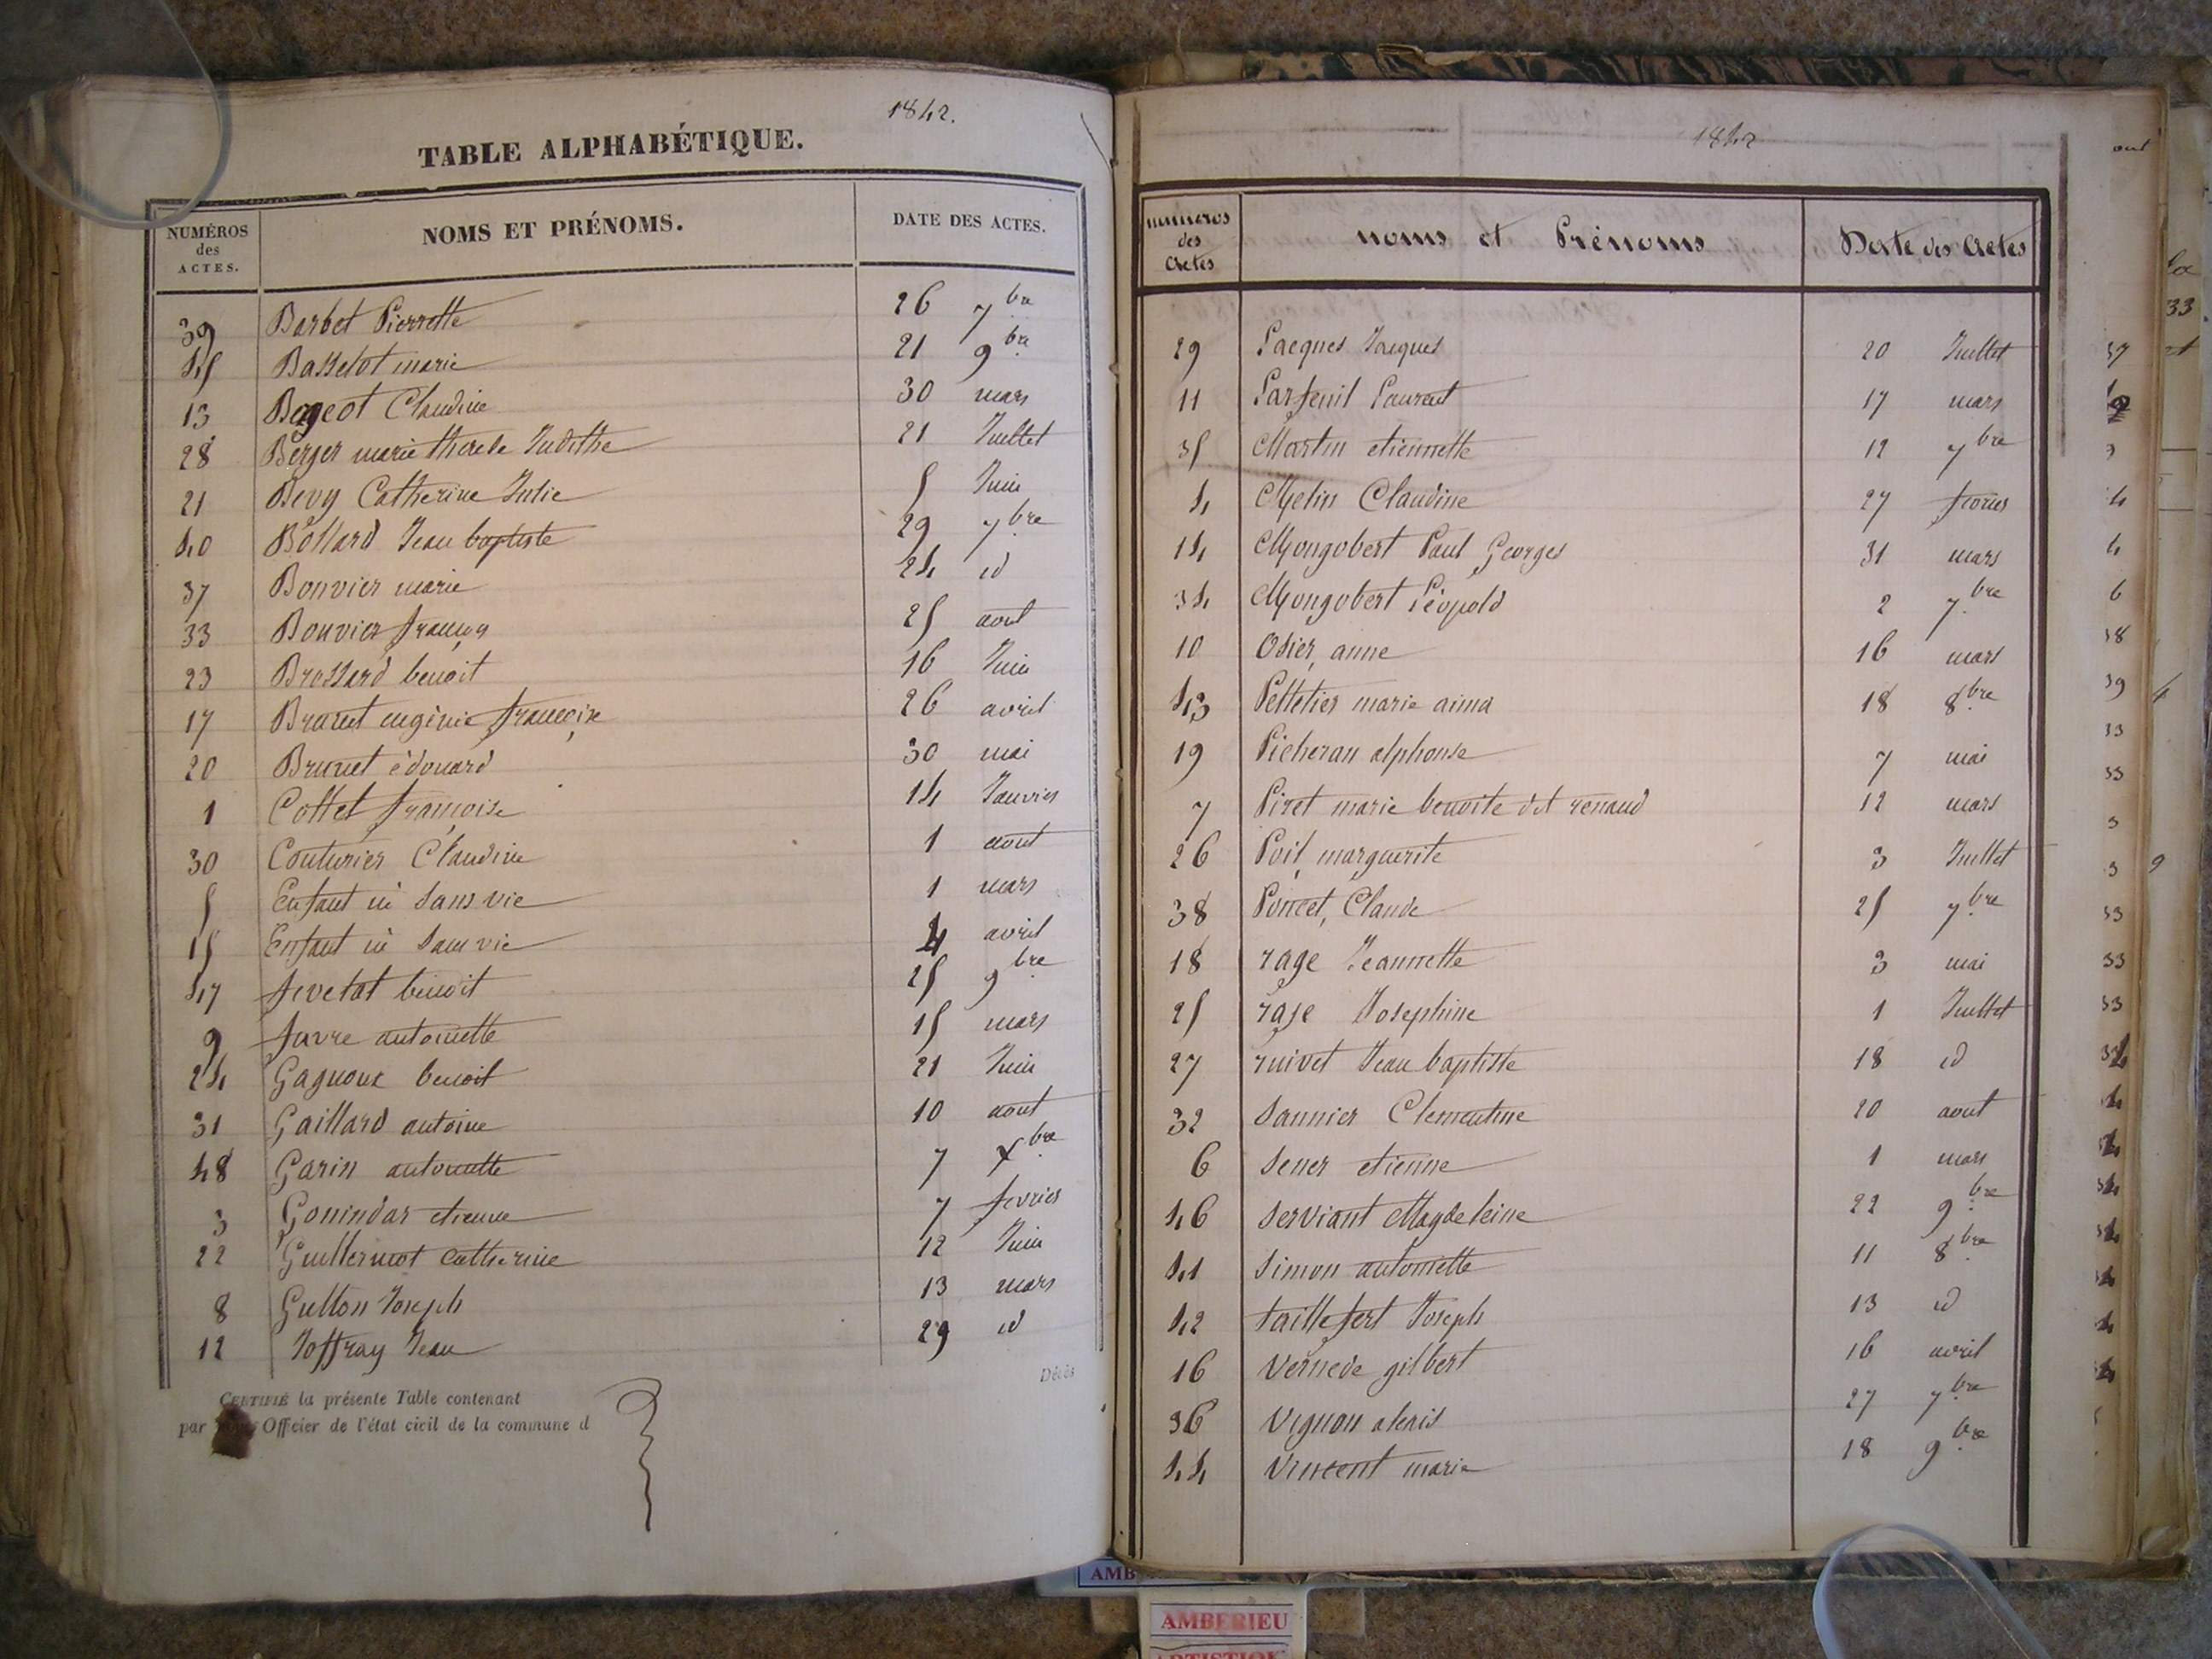 1842.
TABLE ALPHABÉTIQUE.
NUMÉROS des ACTES. NOMS ET PRÉNOMS. DATE DES ACTES.
39 Barbet Pierrette 26 7bre
45 Basselot marie 21 9bre
13 Bageot Claudine 30 mars
28 Berger marie therese Judithe 21 Juillet
21 Bevy Catherine Julie 5 Juin
40 Bollard Jean baptiste 29 7bre
37 Bonvier marie 24 id
33 Bouvier françois 25 aout
23 Brossard benoit 16 Juin
17 Brunet eugénie françoise 26 avril
20 Brunet édouard 30 mai
1 Cottet françoise 14 Janvier
30 Couturier Claudine 1 aout
5 Enfant né sans vie 1 mars
15 Enfant né sans vie 4 avril
47 fevetat benoit 25 9bre
9 favre antoinette 15 mars
24 Gagnoux benoit 21 Juin
31 Gaillard antoine 10 aout
48 Garin antoinette 7 Xbre
3 Gonindar etienne 7 fevrier
22 Guillermot Catherine 12 Juin
8 Gullon Joseph 13 mars
12 Joffray Jean 29 id
Décès
CERTIFIÉ la présente Table contenant
par Nous Officier de l'état civil de la commune d
1842
numéros des Actes noms et Prénoms Date des Actes
29 Lacques Jacques 20 Juillet
11 Parfeuil Laurent 17 mars
35 Martin etiennette 12 7bre
4 Melin Claudine 27 fevrier
14 Mongobert Paul Georges 31 mars
34 Mongobert Léopold 2 7bre
10 Odier anne 16 mars
43 Pelletier marie aima 18 8bre
19 Picheran alphonse 7 mai
7 Piret marie benoite dit renaud 12 mars
26 Poil marguerite 3 Juillet
38 Poncet, Claude 25 7bre
18 rage Jeannette 3 mai
25 rage Josephine 1 Juillet
27 ruivet Jean baptiste 18 id
32 Sannier Clementine 20 aout
6 Sener etienne 1 mars
46 Serviant Magdeleine 22 9bre
41 Simon antoinette 11 8bre
42 taillefert Joseph 13 id
16 Vernede gilbert 16 avril
36 Vignon alexis 27 7bre
44 Vincent marie 18 9bre
AMBERIEU